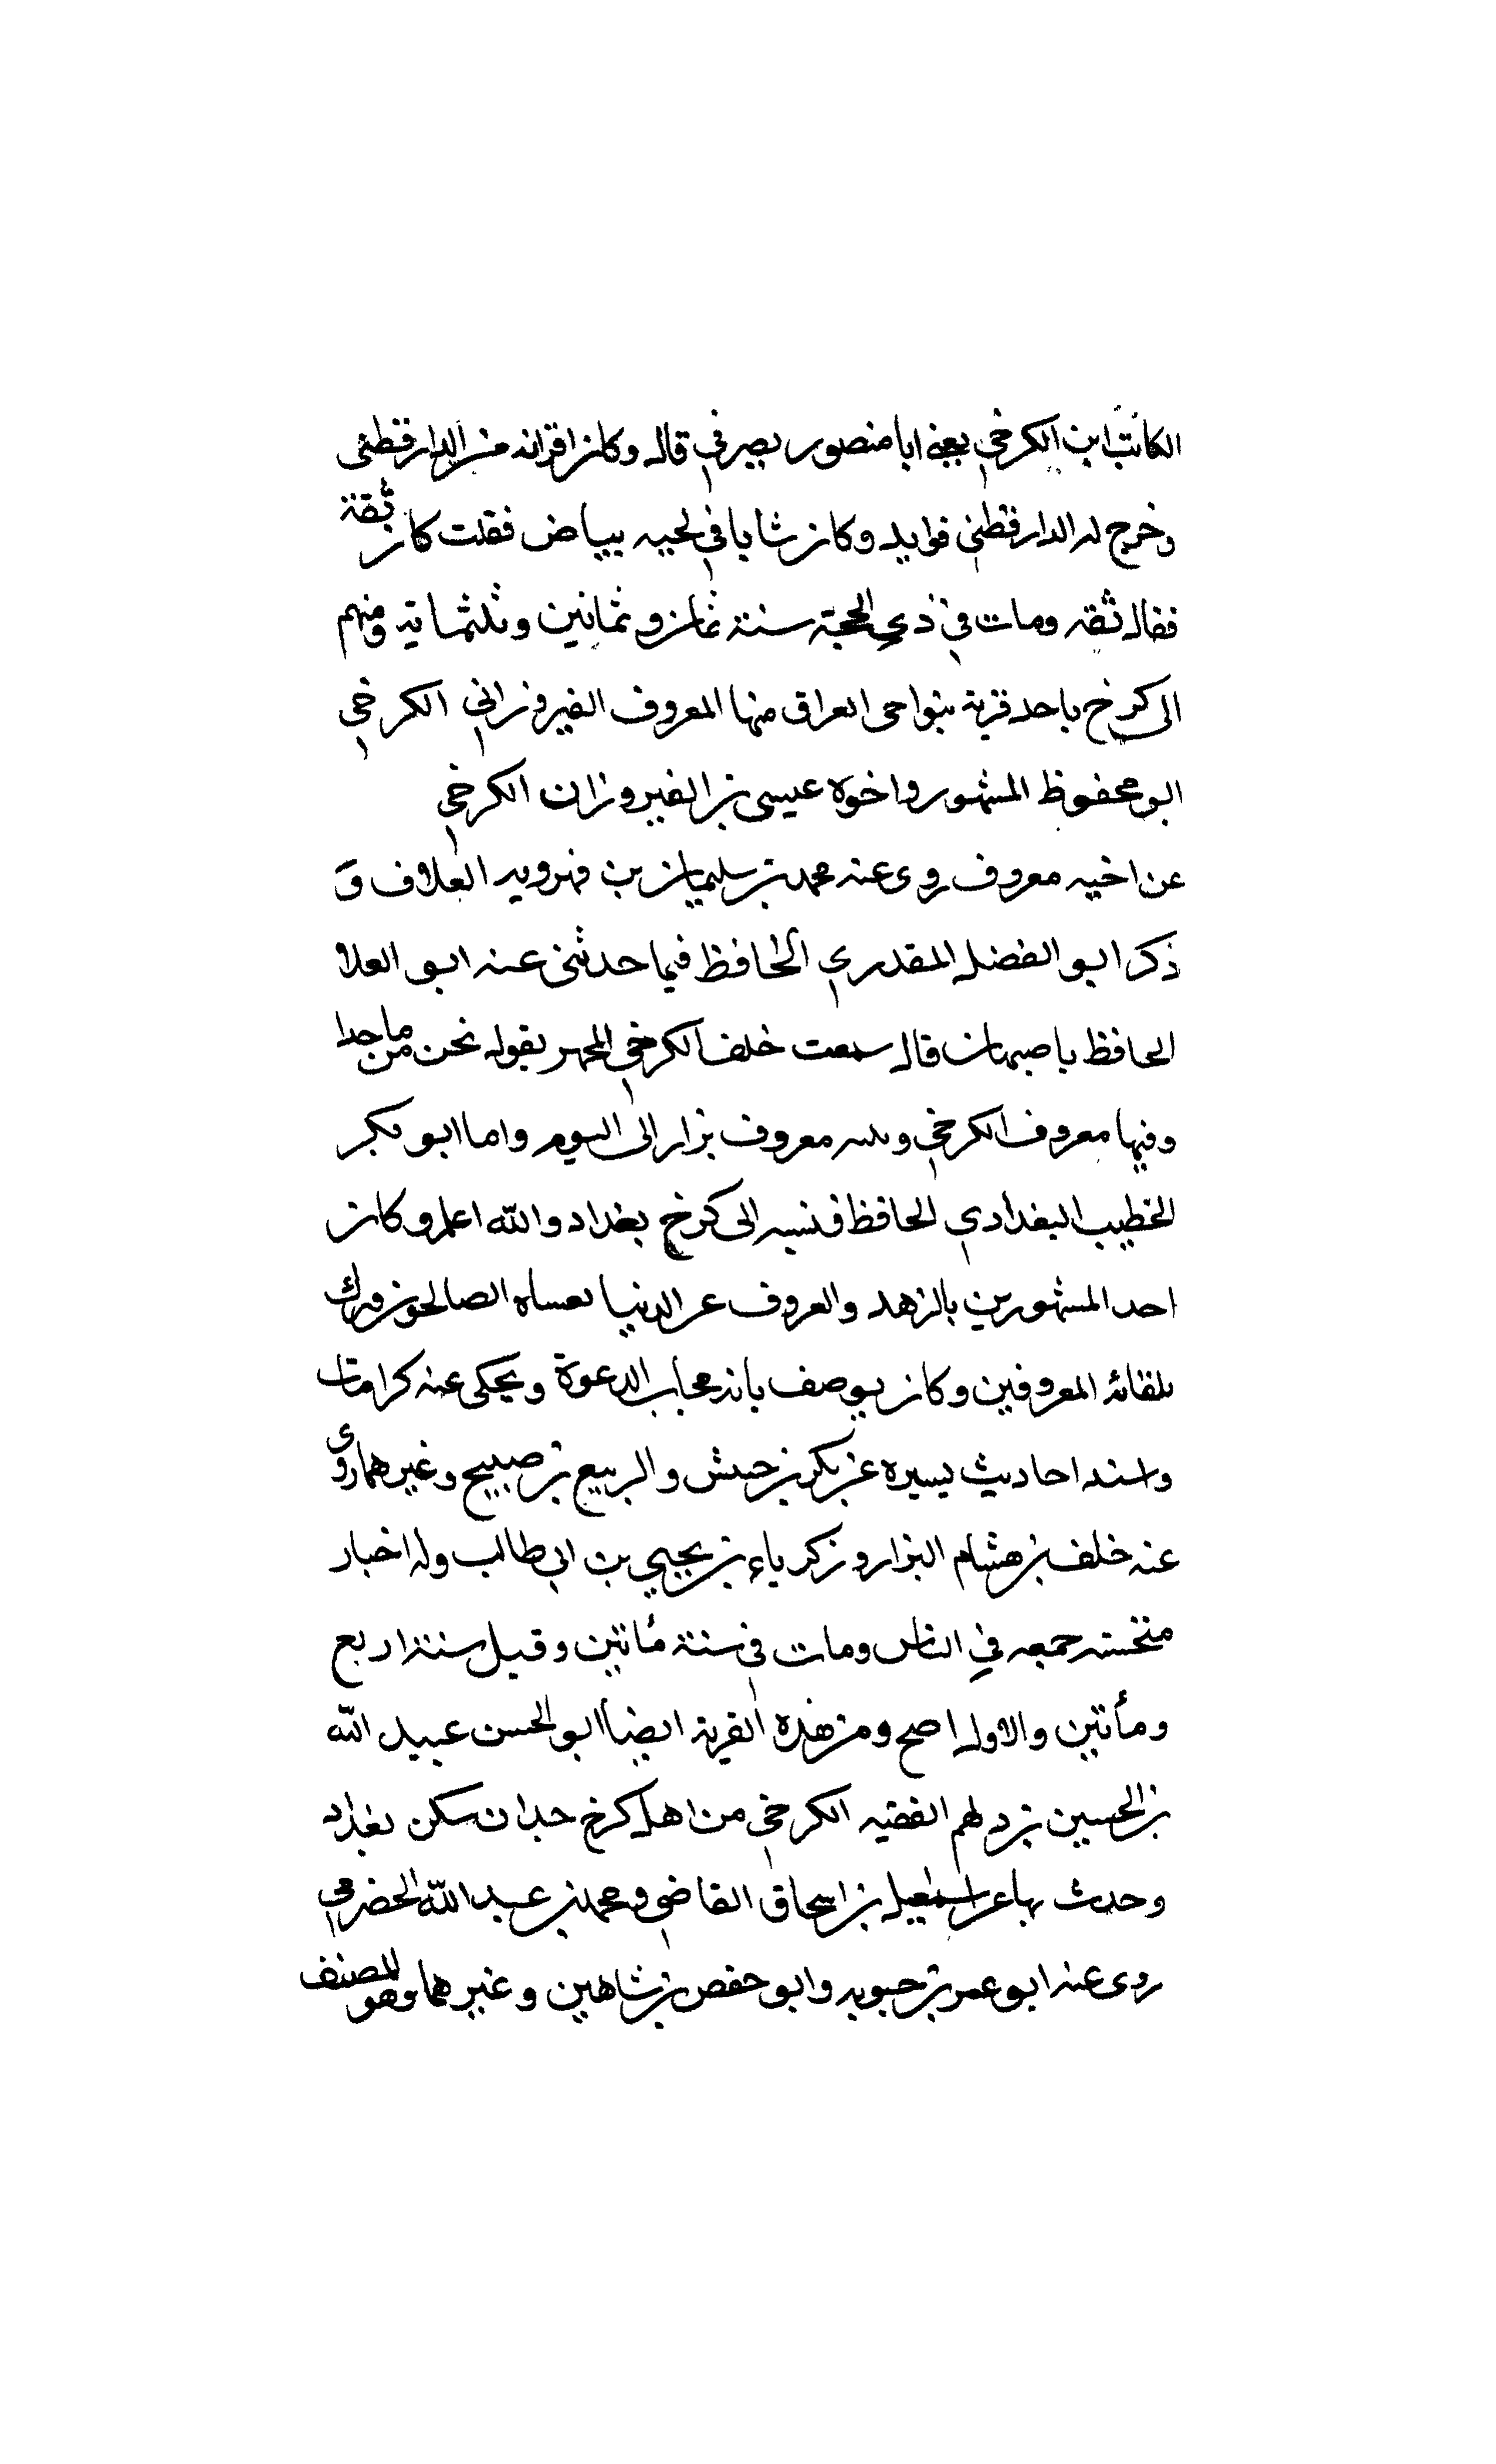 الكاتب ابن الكرخي يعني ابا منصور يصرفي قال وكان اقرانه من الدارقطني
وخرج له الدارقطني فوايد وكان شابا في لحيه بياض فقلت كان ثقة
فقال ثقه ومات في ذي الحجة سنة ثمان وثمانين وثلثماية ومنهم
الى كرخ باحد قرية بنواحى العراق منها المعروف الفيروزاني الكرخي
ابو محفوظ المشهور واخوه عيسى بن الفيروزان الكرخي
عن اخيه معروف روى عنه محمد بن سليمان بن فهرويه العلاف و
ذكر ابو الفضل المقدسي الحافظ فيما حدثنى عنه ابو العلا
الحافظ باصبهان قال سمعت خلف الكرخي يقول نحن من باجدا
وفيها معروف الكرخي وبيت معروف يزار الى اليوم واما ابو بكر
الخطيب البغدادي الحافظ فنسبه الى كرخ بغداد والله اعلم وكان
احد المشهورين بالزهد والعزوف عن الدنيا يغشاه الصالحون ويتبرك
بلقائه المعروفين وكان يوصف بانه مجاب الدعوة ويحكى عنه كرامات
واسند احاديث يسيره عن بكر بن حنيش والربيع بن صبيح وغيرهما روى
عنه خلف بن هشام البزار وزكرياء بن يحيي بن ابي طالب وله اخبار
مستحسنه جمعه في الناس ومات في سنة مأتين وقيل سنة اربع
ومأتين والاول اصح ومن هذه القرية ايضا ابو الحسن عبيد الله
بن الحسين بن دلهم الفقيه الكرخي من اهل كرخ جدان سكن بغداد
وحدث بها عن اسمعيل بن اسحاق القاضي ومحمد بن عبد الله الحضرمي
روى عنه ابو عمر بن حيويه وابو حفص بن شاهين وغيرهما وهو المصنف